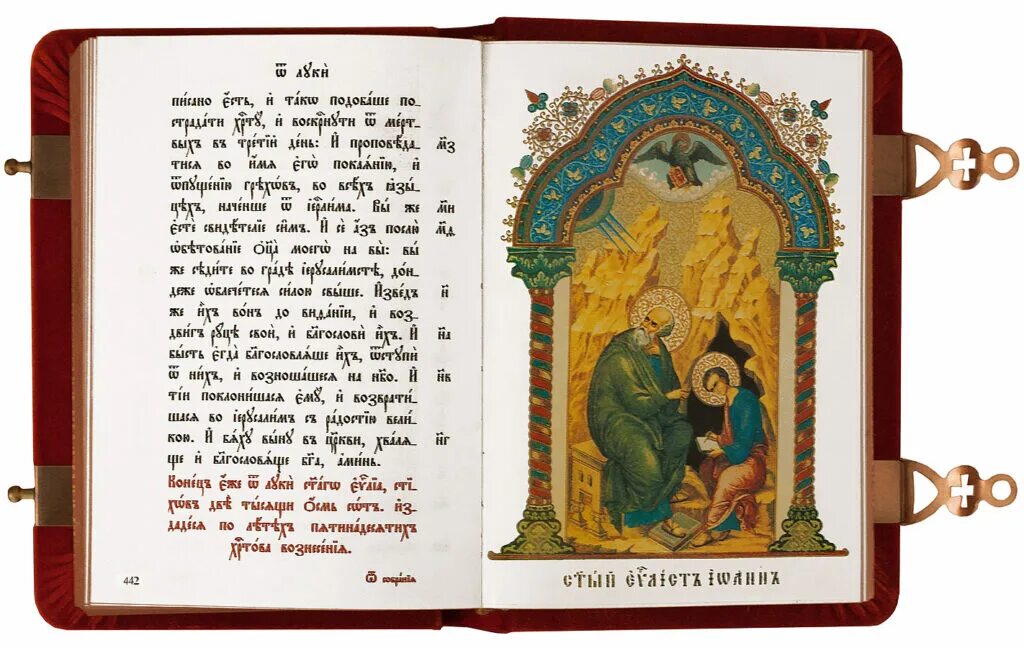 ѿ луки̑
пи́сано є҆́сть, и҆ та́кѡ подоба́ше по-
страда́ти хрⷭ҇тꙋ̀, и҆ воскрⷭ҇нꙋти ѿ ме́рт-
выхъ въ тре́тїй де́нь: И҆ проповѣ́да- м҃з
тисѧ во и҆́мѧ є҆гѡ̀ покаѧ́нїю, и҆
ѿпꙋще́нїю грѣхѡ́въ, во всѣ́хъ ꙗ҆зы́-
цѣхъ, наче́нше ѿ і҆ерⷭ҇ли́ма. Вы́ же м҃и
є҆стѐ свидѣ́телїе си̑мъ. И҆ сѐ а҆́зъ послю̀ м҃ѳ
ѡ҆бѣтова́нїе ѻ҆ц҃а̀ моегѡ̀ на вы̀: вы́
же сѣди́те во гра́дѣ і҆ерꙋсали́мстѣ, до́н-
деже ѡ҆блече́тесѧ си́лою свы́ше. И҆зве́дъ н҃
же и҆̀хъ во́нъ до виѳа́нїи, и҆ воз-
дви́гъ рꙋ́цѣ своѝ, и҆ блгⷭ҇ослови̑ и҆̀хъ. И҆ н҃а
бы́сть є҆гда̀ блгⷭ҇ословлѧ́ше и҆̀хъ, ѿстꙋпѝ
ѿ ни́хъ, и҆ возноша́шесѧ на нб҃о. И҆ н҃в
ті́и поклони́шасѧ є҆мꙋ̀, и҆ возврати́-
шасѧ во і҆ерꙋсали́мъ съ ра́достїю вели́-
кою. И҆ бѧ́хꙋ вы́нꙋ въ цр҃кви, хва́лѧ- н҃г
ще и҆ блгⷭ҇ословѧ́ще бг҃а, а҆ми́нь.
Коне́цъ є҆́же ѿ лꙋкѝ ст҃а́гѡ є҆ѵⷢ҇лїа, сті-
хѡ́въ двѣ̀ ты́сѧщи ѻ҆́смь сѡ́тъ. и҆з-
даде́сѧ по лѣ́тѣхъ пѧтина́десѧтихъ
хрⷭ҇то́ва вознесе́нїѧ.
442
Ѿ собра́нїѧ
ст҃ы́й є҆ѵⷢ҇лі́стъ і҆ѡа́ннъ